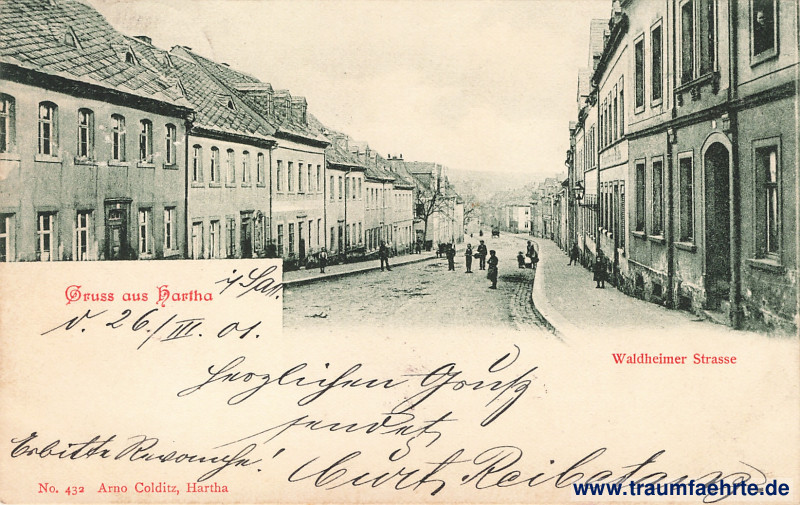 Gruss aus Hartha i/Sa.
d. 26/III. 01.
Waldheimer Strasse
Herzlichen Gruß
sendet
Erbitte Revanche!
Curt
No. 432 Arno Colditz, Hartha
www.traumfaehrte.de